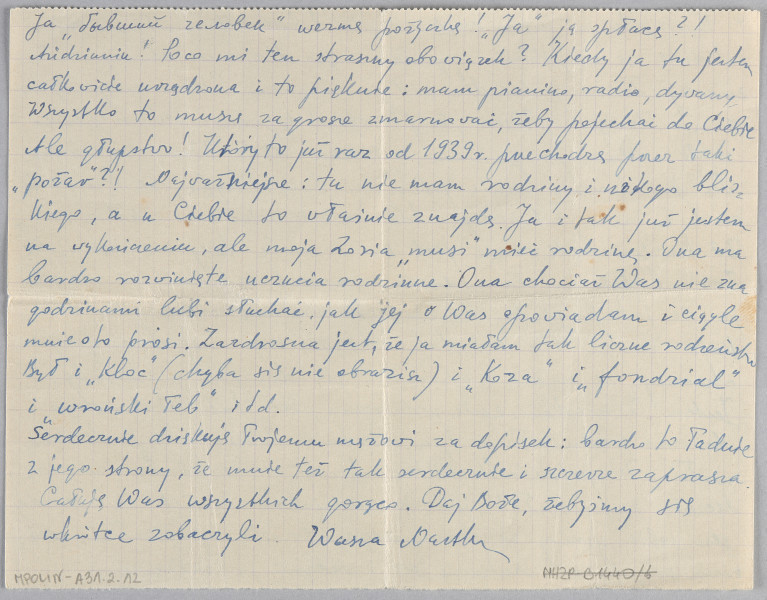 Ja „бывший человек" wezmę pożyczkę! „Ja" ją spłacę?!
Poco mi ten straszny obowiązek? Kiedy ja tu jestem
całkowicie urządzona i to pięknie: mam pianino, radio, dywany.
Wszystko to muszę za grosze zmarnować, żeby pojechać do Ciebie
Ale głupstwo! Któryto już raz od 1939 r. przechodzę przez taki
„pożar"?! Najważniejsze: tu nie mam rodziny i nikogo bliz-
kiego, a u Ciebie to właśnie znajdę. Ja i tak już jestem
na wykończeniu, ale moja Zosia „musi" mieć rodzinę. Ona ma
bardzo rozwinięte uczucia rodzinne. Ona chociaż Was nie zna
godzinami lubi słuchać, jak jej o Was opowiadam i ciągle
mnie oto prosi. Zazdrosna jest, że ja miałam tak liczne rodzeństwo
Był i „Kloc" (chyba się nie obrazisz) i „Koza" i „fondzial"
i „wroński łeb" itd.
Serdecznie dziękuję Twojemu mężowi za dopisek: bardzo to ładnie
z jego strony, że mnie też tak serdecznie i szczerze zaprasza.
Całuję Was wszystkich gorąco. Daj Boże, żebyśmy się
wkrótce zobaczyli. Wasza
MPOLIN-A31.2.12
MHŻP-B1440/6